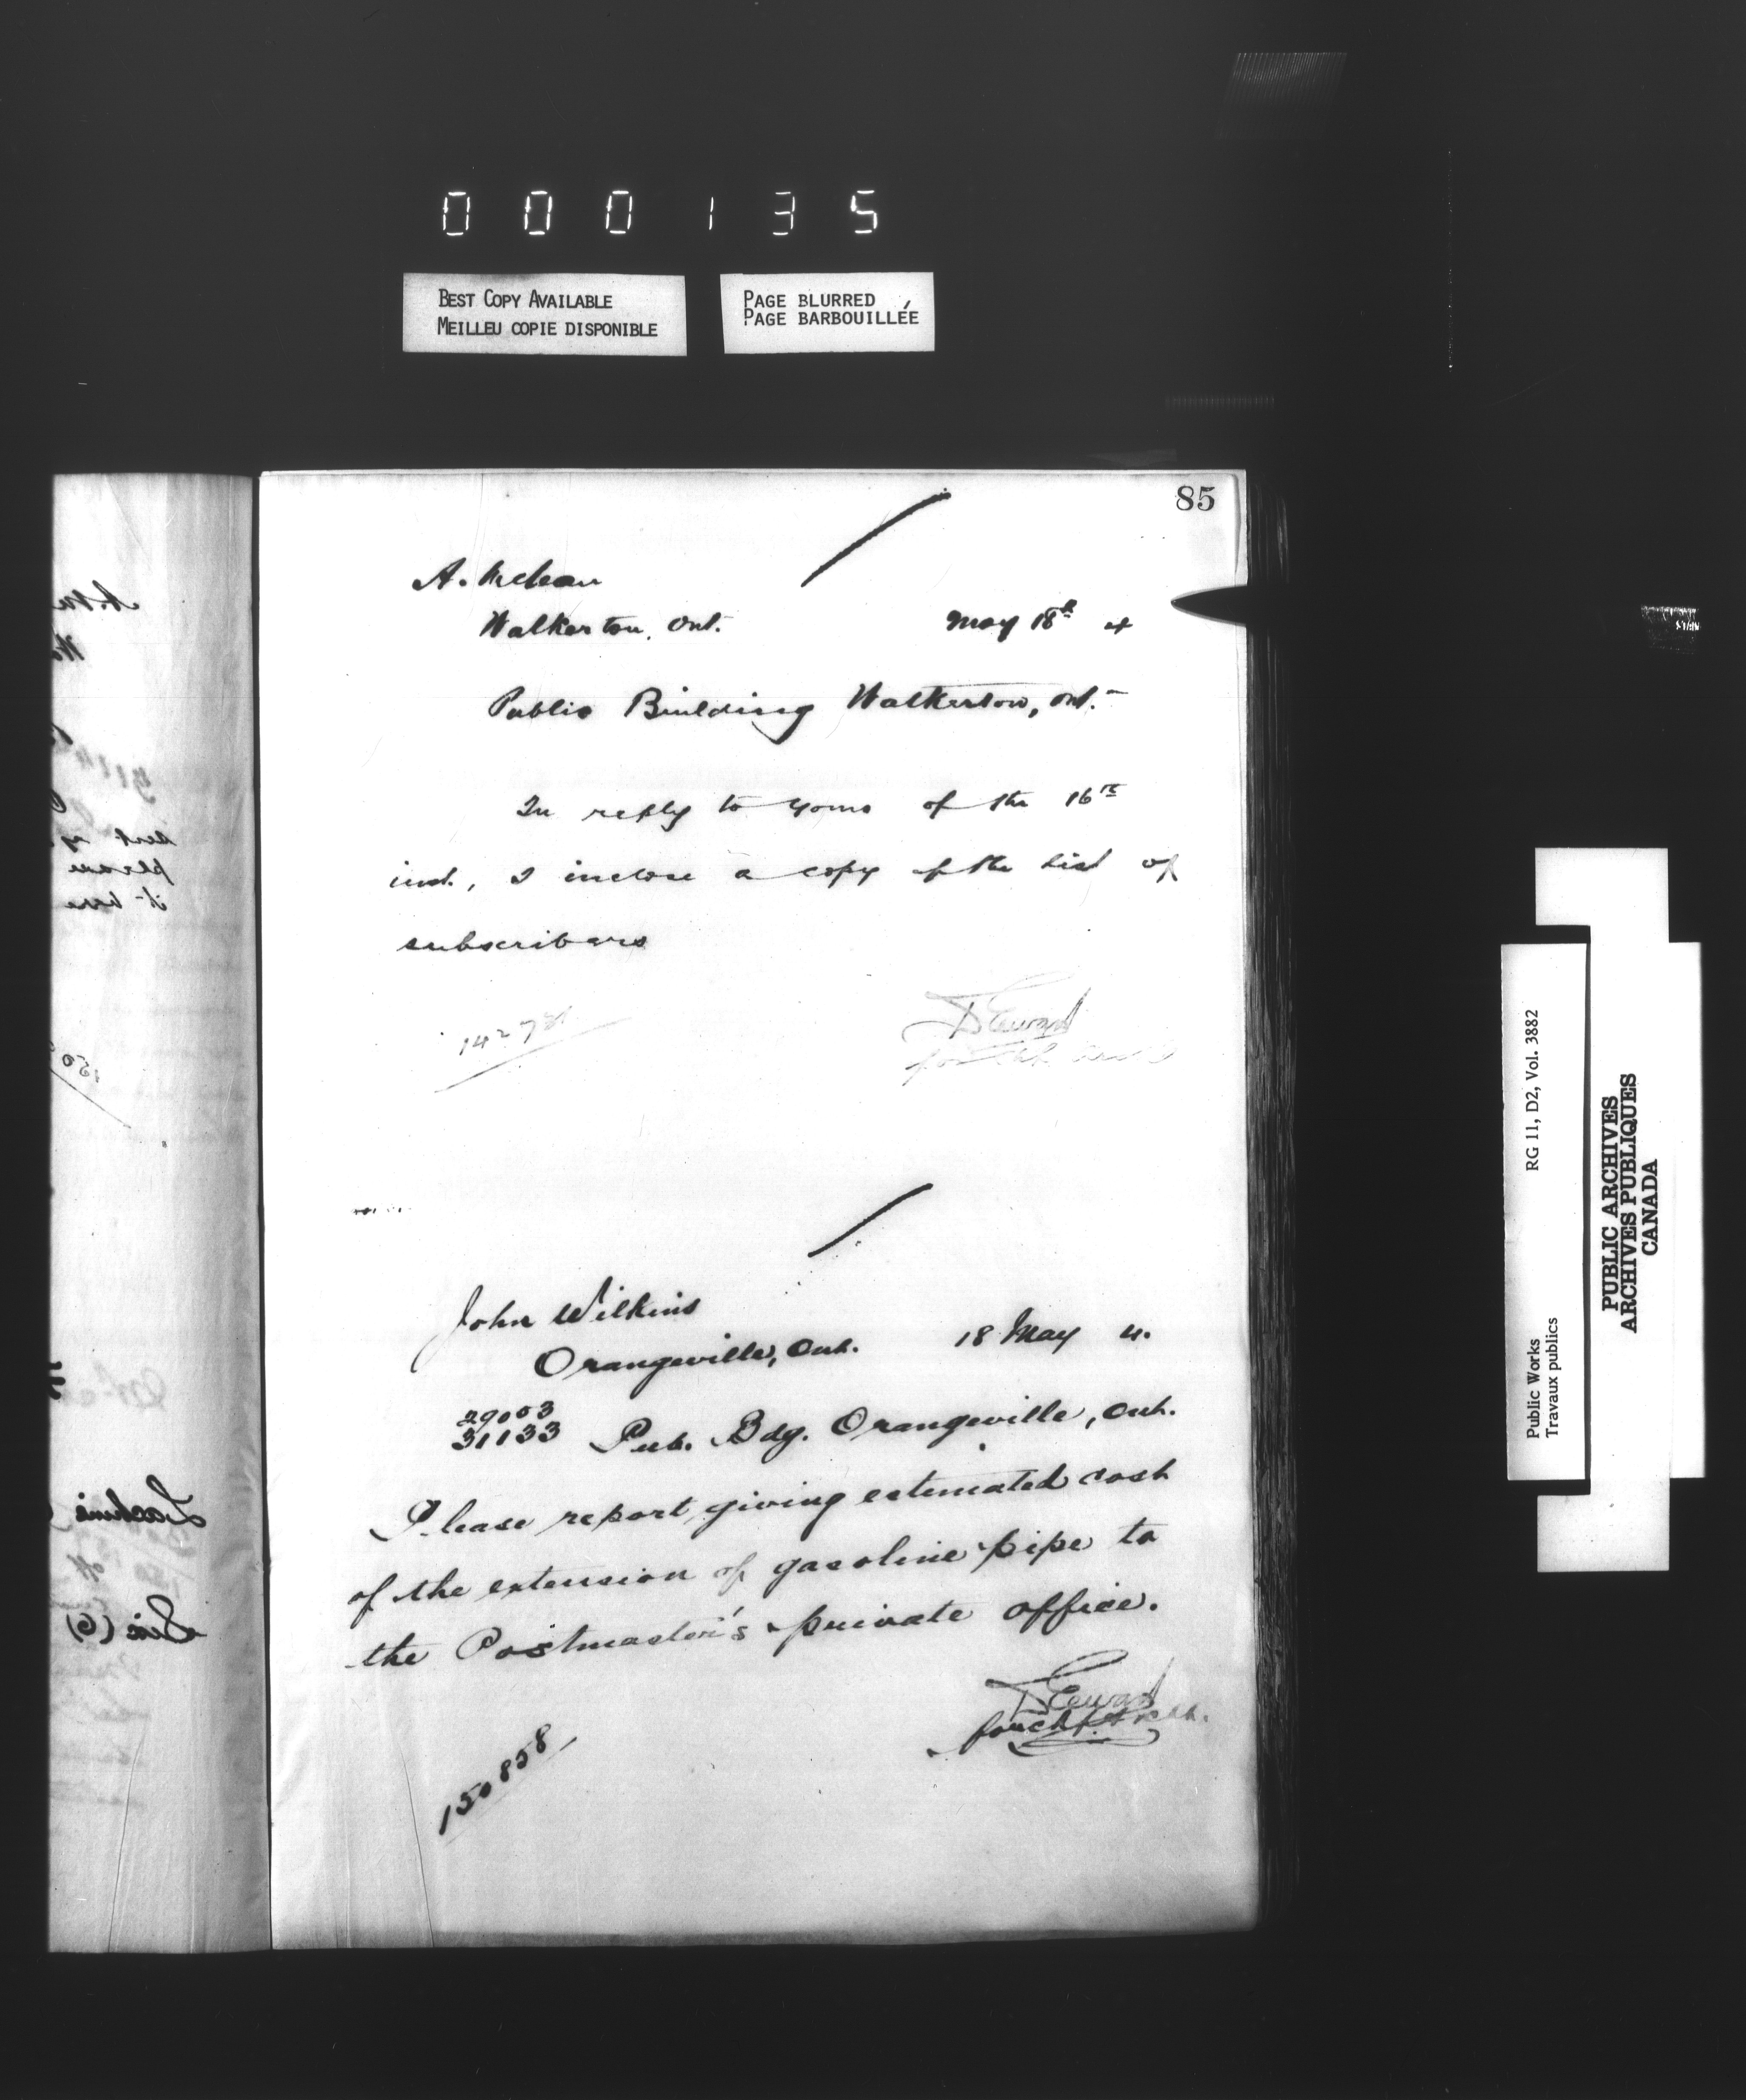 000135
BEST COPY AVAILABLE
MEILLEU COPIE DISPONIBLE
PAGE BLURRED
PAGE BARBOUILLÉE
85
A. McLean
Walkerton, Ont. May 18th 4
Public Building Walkerton, Ont.
In reply to yours of the 16th
inst., I inclose a copy of the list of
subscribers
D Ewart
for Ch.
John Wilkins
Orangeville, Ont. 18 May 4.
29003
31133 Pub. Bdg. Orangeville, Ont.
Please report, giving estimated cost
of the extension of gasoline pipe to
the Postmaster's private office.
D Ewart
for Ch. Arch.
150858
RG 11, D2, Vol. 3882
Public Works
Travaux publics
PUBLIC ARCHIVES
ARCHIVES PUBLIQUES
CANADA